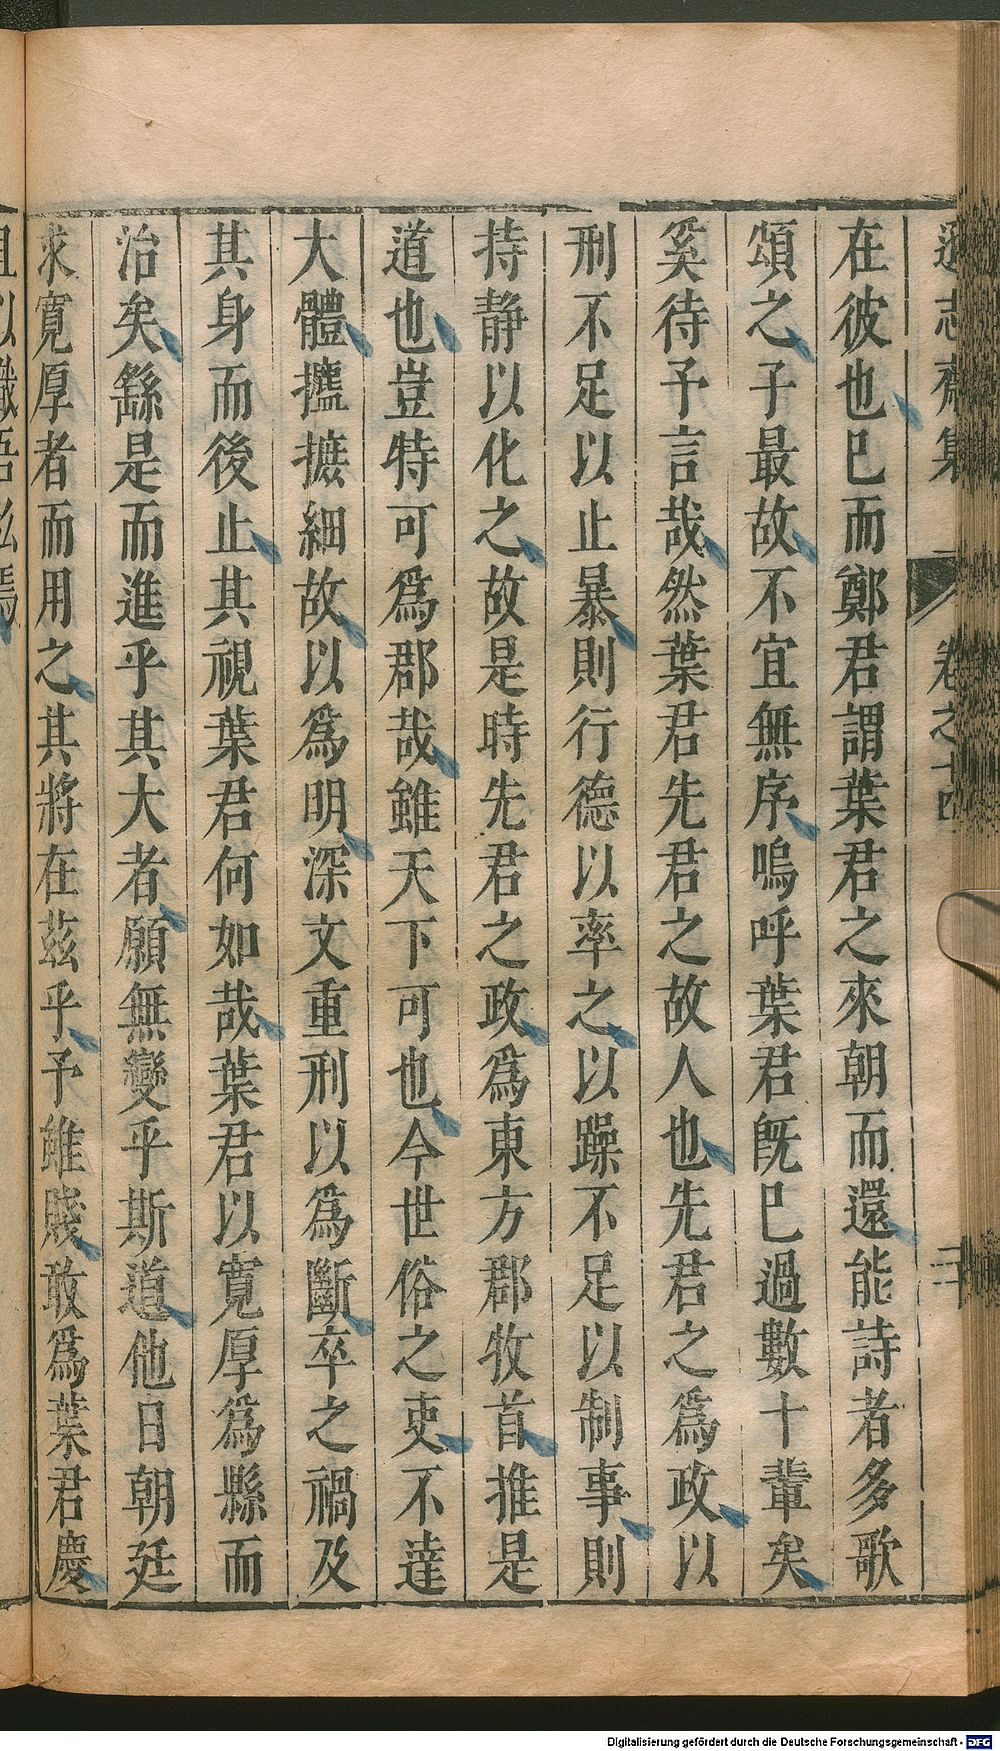 遜志齋集 卷之十四 二十
在彼也已而鄭君謂葉君之來朝而還能詩者多歌
頌之子最故不宜無序嗚呼葉君旣已過數十輩矣
奚待予言哉然葉君先君之故人也先君之爲政以
刑不足以止暴則行德以率之以躁不足以制事則
持静以化之故是時先君之政爲東方郡牧首推是
道也豈特可爲郡哉雖天下可也今世俗之吏不達
大體攟摭細故以爲明深文重刑以爲斷卒之禍及
其身而後止其視葉君何如哉葉君以寛厚爲縣而
治矣繇是而進乎其大者願無變乎斯道他日朝廷
求寛厚者而用之其將在茲乎予雖賤敢爲葉君慶
且以識吾私焉
Digitalisierung gefördert durch die Deutsche Forschungsgemeinschaft - DFG